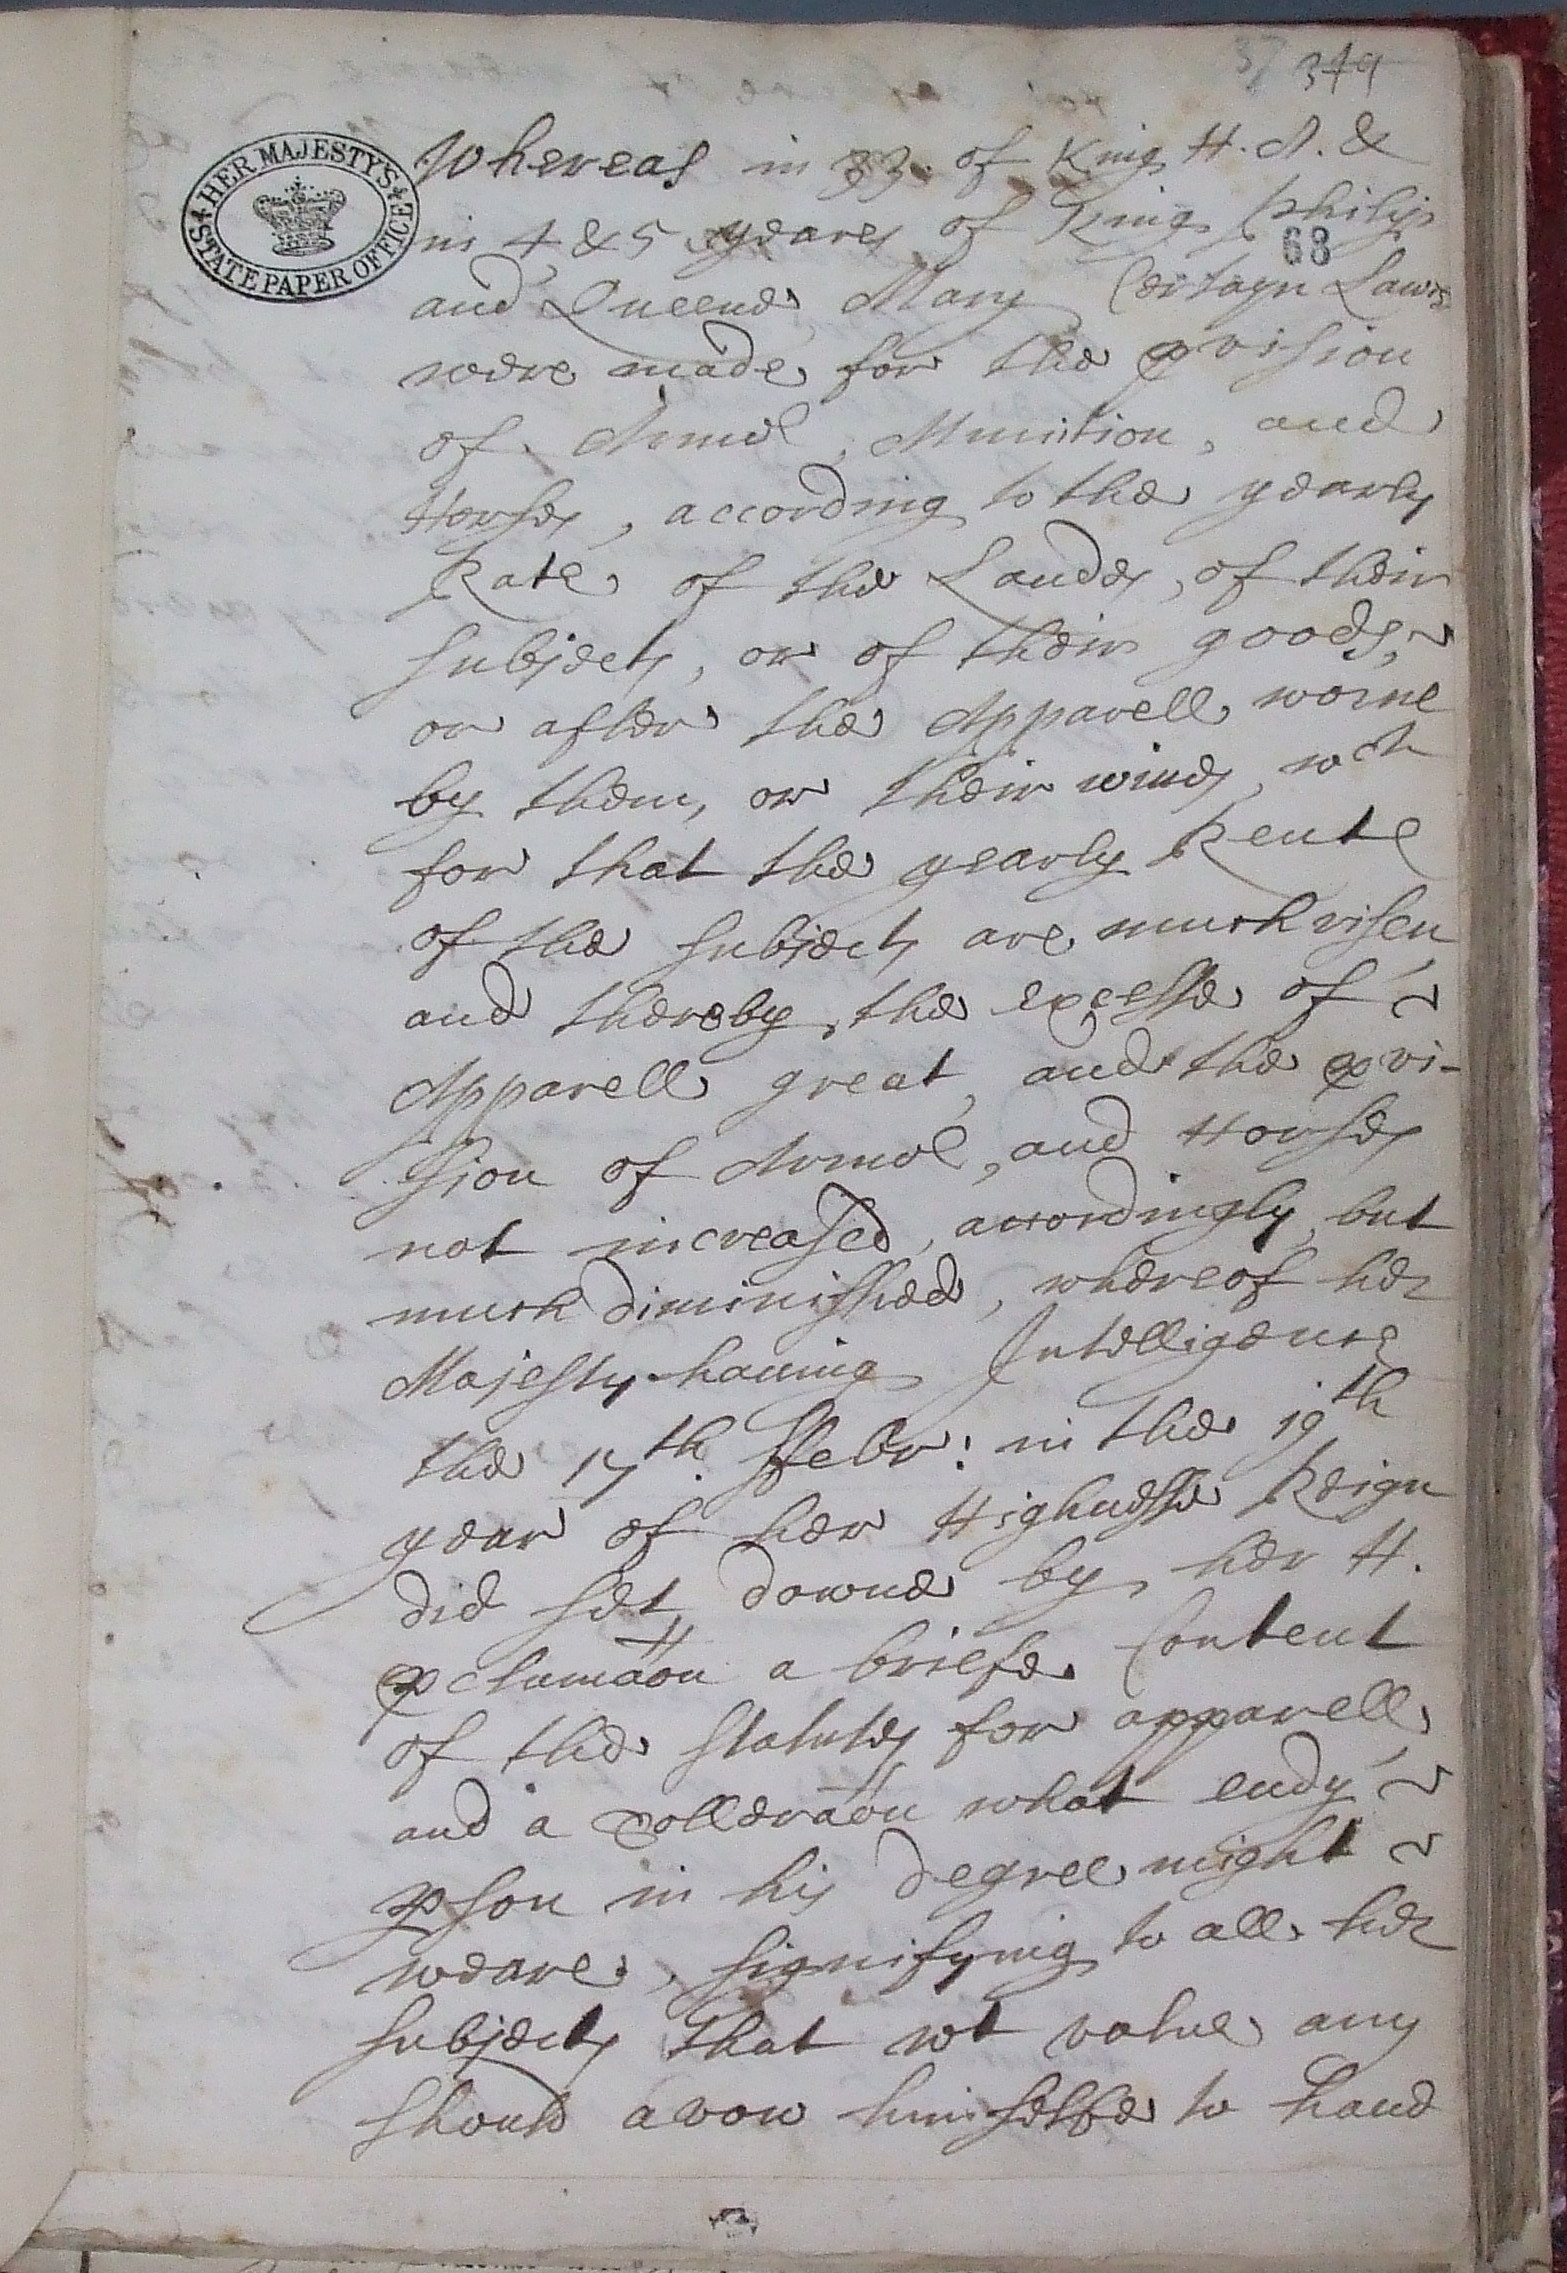 349
HER MAJESTY'S
STATE PAPER OFFICE
68
Whereas in 33. of King H. 8. &
in 4 & 5 yeares of King Philip
and Queene Mary Certayn Lawes
were made for the pvision
of Armor, Munition, and
Horses, according to the yearly
Rate of the Landes, of their
subjects, or of their goods,
or after the Apparell worne
by them, or their wives, wch
for that the yearly Rente
of the subjects are much risen,
and thereby the excesse of
Apparell great, and the pvi-
sion of Armor, and Horses
not increased, accordingly, but
much diminished, whereof her
Majesty having Intelligence
the 17th. ffebr: in the 19th
year of her Highnesse Reign
did set downe by her H.
pclamaon a briefe Content
of the Statutes for apparell,
and a tolleraon what every
pson in his degree might
weare, signifying to all her
subjects that wt value any
should avow himselfe to have